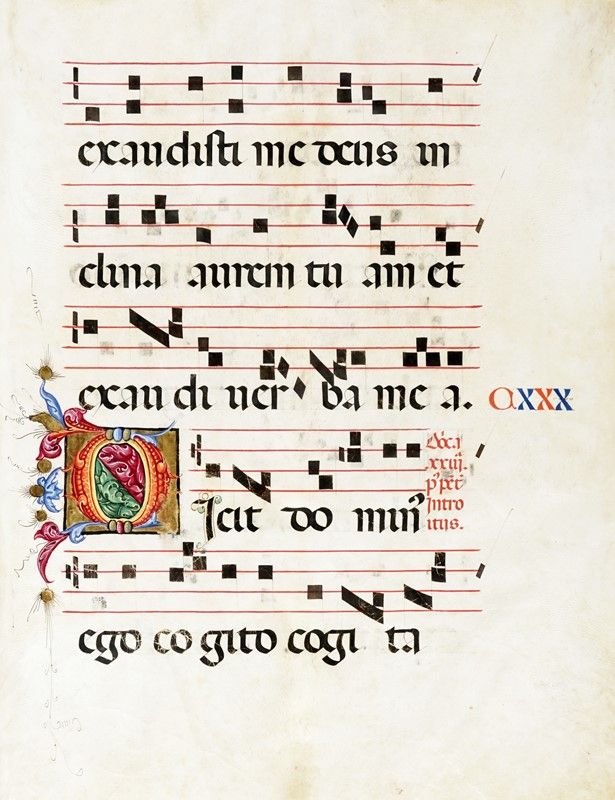 exaudisti me deus in
clina aurem tu am et
exau di uer ba me a.
CXXX
Dicit do
xxiii.
Intro
itus.
ego co gito cogi ta